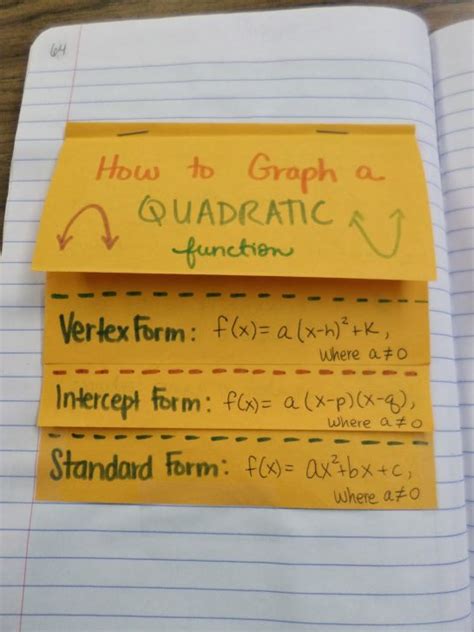 64
How to Graph a
QUADRATIC
function
Vertex Form: f(x)= a(x-h)²+k,
where a≠0
Intercept Form: f(x)= a(x-p)(x-q),
where a≠0
Standard Form: f(x)= ax²+bx+c,
where a≠0